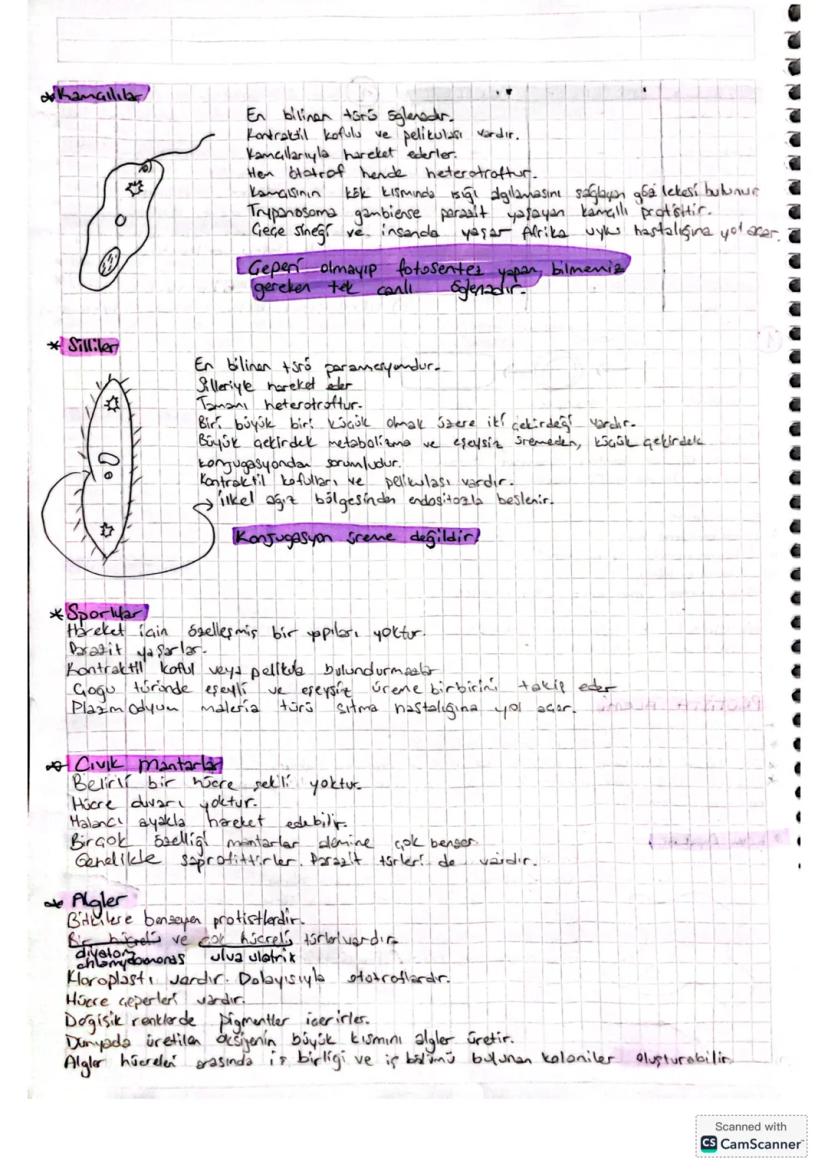 * Kamçılılar
En bilinen türü öglenadır.
Kontraktil kofulu ve pelikulası vardır.
Kamçılarıyla hareket ederler.
Hem ototrof hemde heterotroftur.
Kamçısının kök kısmında ışığı algılamasını sağlayan göz lekesi bulunur
Tryponosoma gambiense parazit yaşayan kamçılı protisttir.
Çeçe sineği ve insanda yaşar Afrika uyku hastalığına yol açar.
Çeperi olmayıp fotosentez yapan, bilmeniz
gereken tek canlı öglenadır.
* Silliler
En bilinen türü paramesyumdur.
Silleriyle hareket eder
Tamamı heterotroftur.
Biri büyük biri küçük olmak üzere iki çekirdeği vardır.
Büyük çekirdek metabolizma ve eşeysiz üremeden, küçük çekirdek
konjugasyondan sorumludur.
Kontraktil kofulları ve pelikulası vardır.
İlkel ağız bölgesinden endositozla beslenir.
Konjugasyon üreme değildir!
* Sporlular
Hareket için özelleşmiş bir yapıları yoktur.
Parazit yaşarlar.
Kontraktil koful veya pelikula bulundurmazlar
Çoğu türünde eşeyli ve eşeysiz üreme birbirini takip eder
Plazmodyum maleria türü sıtma hastalığına yol açar.
* Cıvık mantarlar
Belirli bir hücre şekli yoktur.
Hücre duvarı yoktur.
Yalancı ayakla hareket edebilir.
Birçok özelliği mantarlar alemine çok benzer
Genelikle saprofittirler. Parazit türleri de vardır.
* Algler
Bitkilere benzeyen protistlerdir.
Bir hücreli ve çok hücreli türleri vardır.
diyatom
chlamydomonas ulva ulotrik
Kloroplastı vardır. Dolayısıyla ototroflardır.
Hücre çeperleri vardır.
Değişik renklerde pigmentler içerirler.
Dünyada üretilen oksijenin büyük kısmını algler üretir.
Algler hücreleri arasında iş birliği ve iş bölümü bulunan koloniler oluşturabilir.
Scanned with
CS CamScanner